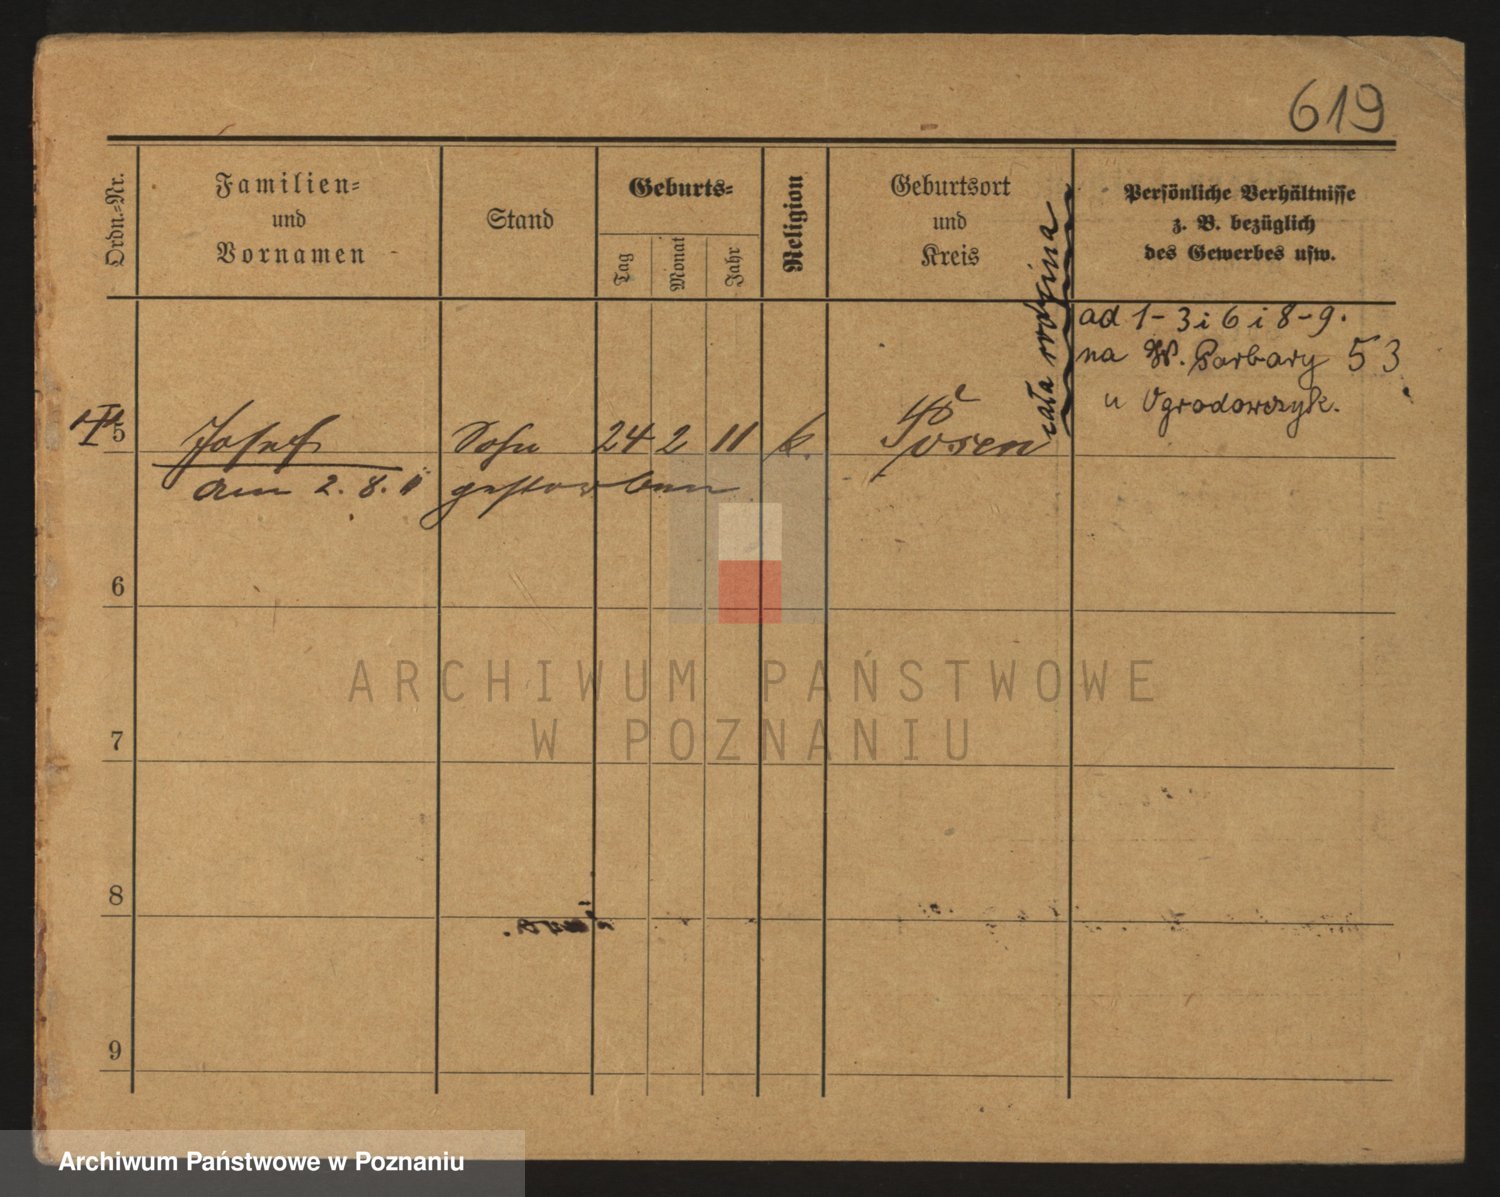 619
Ordn.=Nr.
Familien=
und
Vornamen
Stand
Geburts=
Tag
Monat
Jahr
Religion
Geburtsort
und
Kreis
Persönliche Verhältnisse
z. B. bezüglich
des Gewerbes usw.
cała rodzina
ad 1-3 i 6 i 8-9.
na W. Garbary 53
u Ogrodowczyk.
5 Josef Sohn 24 2 11 k. Posen
am 2. 8. 11 gestorben
6
7
8
9
ARCHIWUM PAŃSTWOWE
W POZNANIU
Archiwum Państwowe w Poznaniu